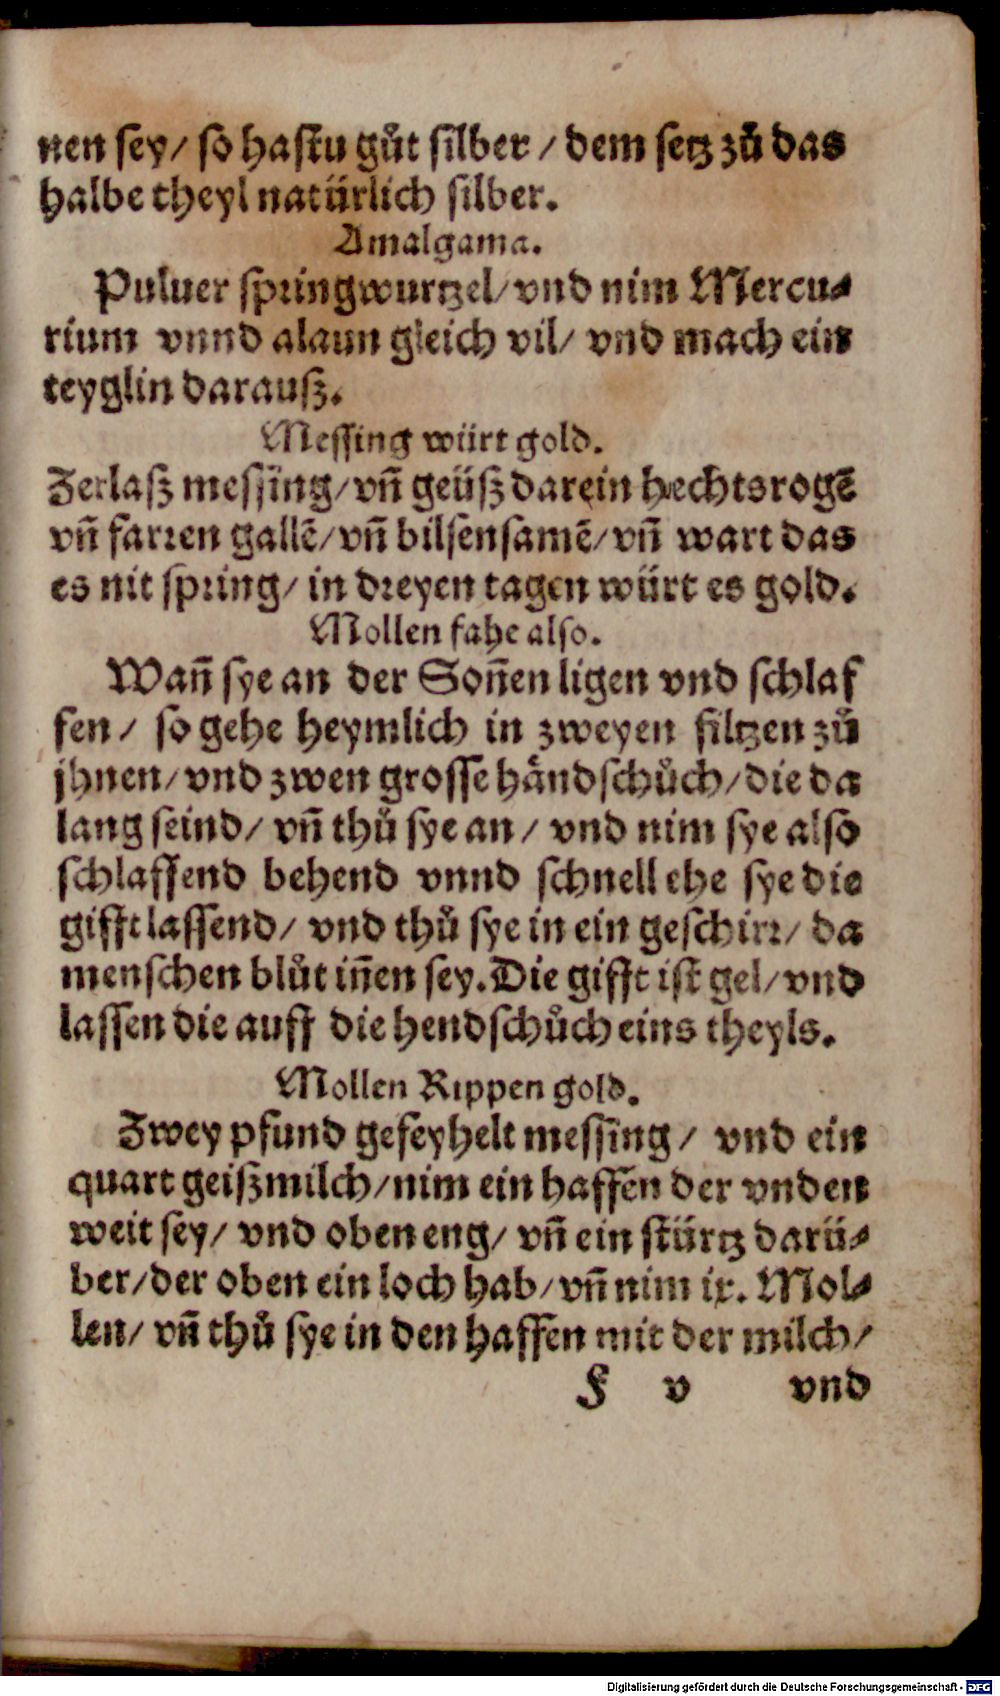 nen sey/ so hastu gůt silber / dem setz zů das
halbe theyl natürlich silber.
Amalgama.
Puluer springwurtzel/ vnd nim Mercu⸗
rium vnnd alaun gleich vil/ vnd mach ein
teyglin darausz.
Messing würt gold.
Zerlasz messing/ vñ geüsz darein hechtsrogẽ
vñ farren gallẽ/ vñ bilsensamẽ/ vñ wart das
es nit spring/ in dreyen tagen würt es gold.
Mollen fahe also.
Wañ sye an der Soñen ligen vnd schlaf
fen/ so gehe heymlich in zweyen filtzen zů
jhnen/ vnd zwen grosse händschůch/ die da
lang seind/ vñ thů sye an/ vnd nim sye also
schlaffend behend vnnd schnell ehe sye die
gifft lassend/ vnd thů sye in ein geschirr/ da
menschen blůt iñen sey. Die gifft ist gel/ vnd
lassen die auff die hendschůch eins theyls.
Mollen Rippen gold.
Zwey pfund gefeyhelt messing/ vnd ein
quart geiszmilch/ nim ein haffen der vnden
weit sey/ vnd oben eng/ vñ ein stürtz darü⸗
ber/ der oben ein loch hab/ vñ nim ix. Mol⸗
len/ vñ thů sye in den haffen mit der milch/
F v vnd
Digitalisierung gefördert durch die Deutsche Forschungsgemeinschaft - DFG